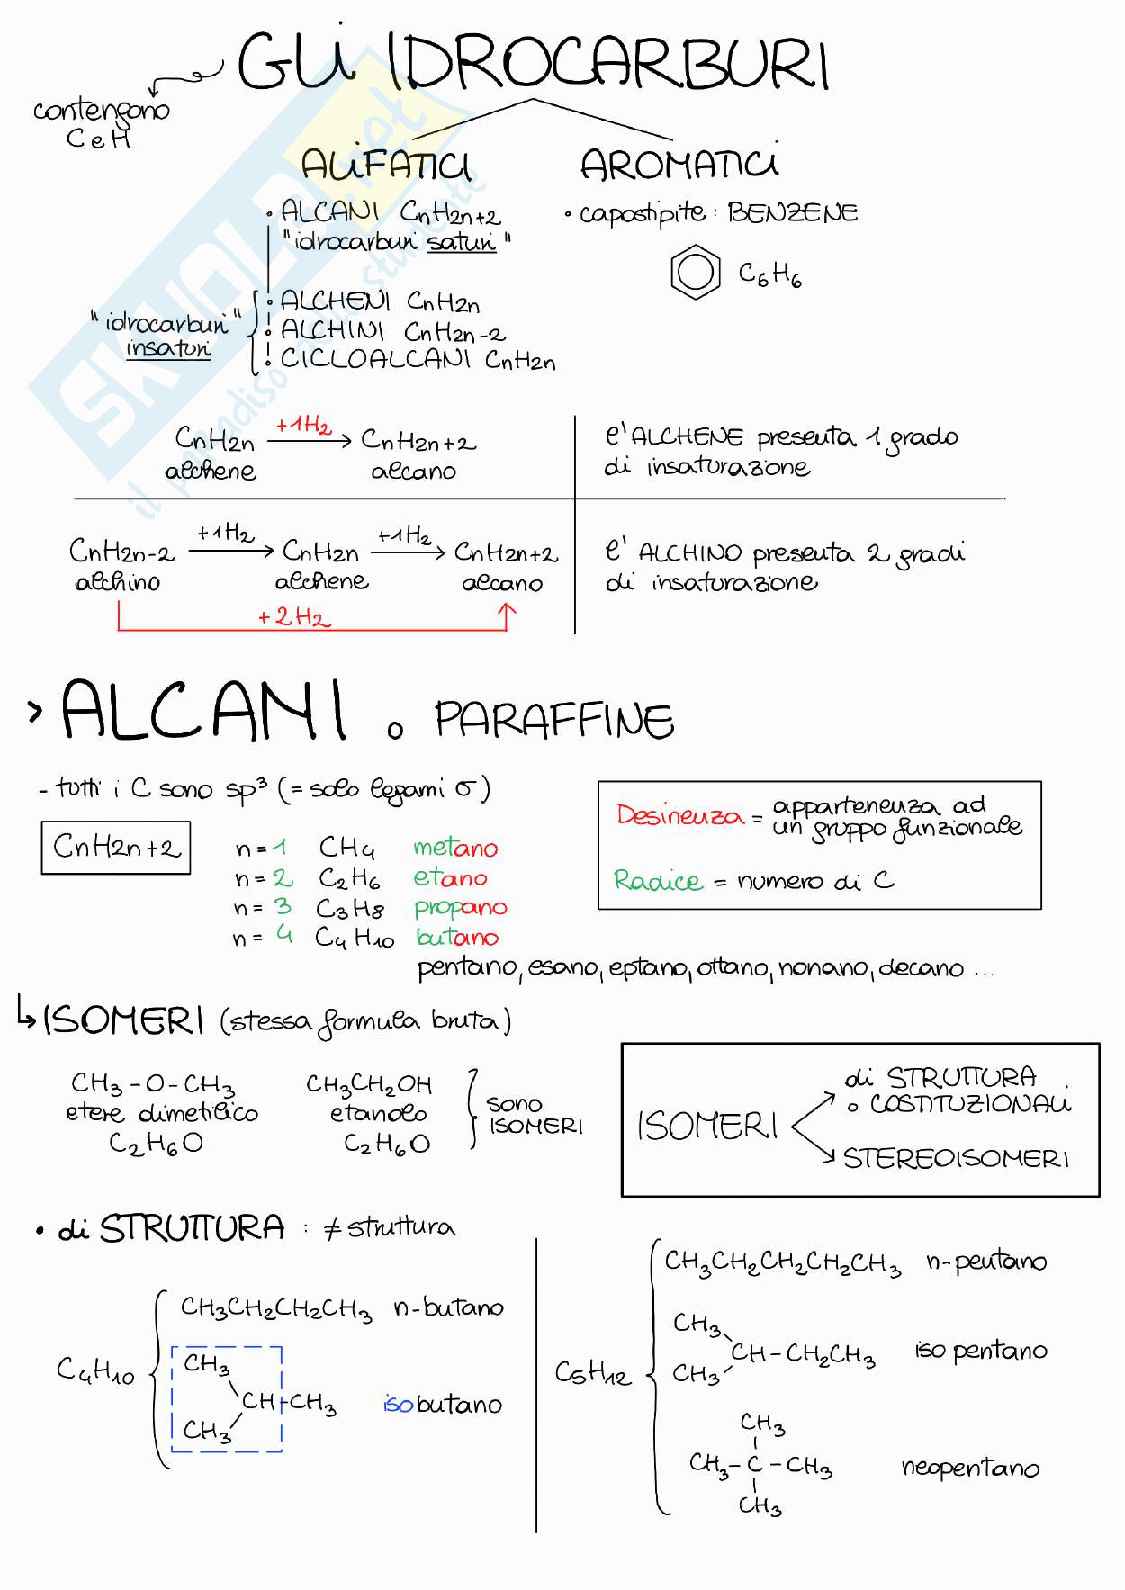 GLI IDROCARBURI
contengono
C e H
ALIFATICI
AROMATICI
• ALCANI CnH2n+2
"idrocarburi saturi"
• capostipite : BENZENE
C6H6
"idrocarburi"
insaturi
• ALCHENI CnH2n
• ALCHINI CnH2n-2
• CICLOALCANI CnH2n
SKUOLA.net
il paradiso dello studente
CnH2n +1H2 → CnH2n+2
alchene alcano
e' ALCHENE presenta 1 grado
di insaturazione
CnH2n-2 +1H2 → CnH2n +1H2 → CnH2n+2
alchino alchene alcano
+2H2
e' ALCHINO presenta 2 gradi
di insaturazione
> ALCANI o PARAFFINE
- tutti i C sono sp³ (= solo legami σ)
CnH2n+2
n = 1 CH4 metano
n = 2 C2H6 etano
n = 3 C3H8 propano
n = 4 C4H10 butano
pentano, esano, eptano, ottano, nonano, decano ...
Desinenza = appartenenza ad
un gruppo funzionale
Radice = numero di C
↳ ISOMERI (stessa formula bruta)
CH3-O-CH3 CH3CH2OH
etere dimetilico etanolo
C2H6O C2H6O
sono
ISOMERI
ISOMERI
di STRUTTURA
o COSTITUZIONALI
STEREOISOMERI
• di STRUTTURA : ≠ struttura
C4H10
CH3CH2CH2CH3 n-butano
CH3
CH-CH3 isobutano
CH3
C5H12
CH3CH2CH2CH2CH3 n-pentano
CH3
CH-CH2CH3 iso pentano
CH3
CH3
CH3-C-CH3 neopentano
CH3